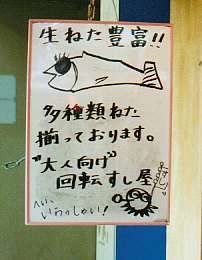 生ねた豊富!!
多種類ねた
揃っております。
"大人向け"
回転すし屋
へい、
いらっしゃい!